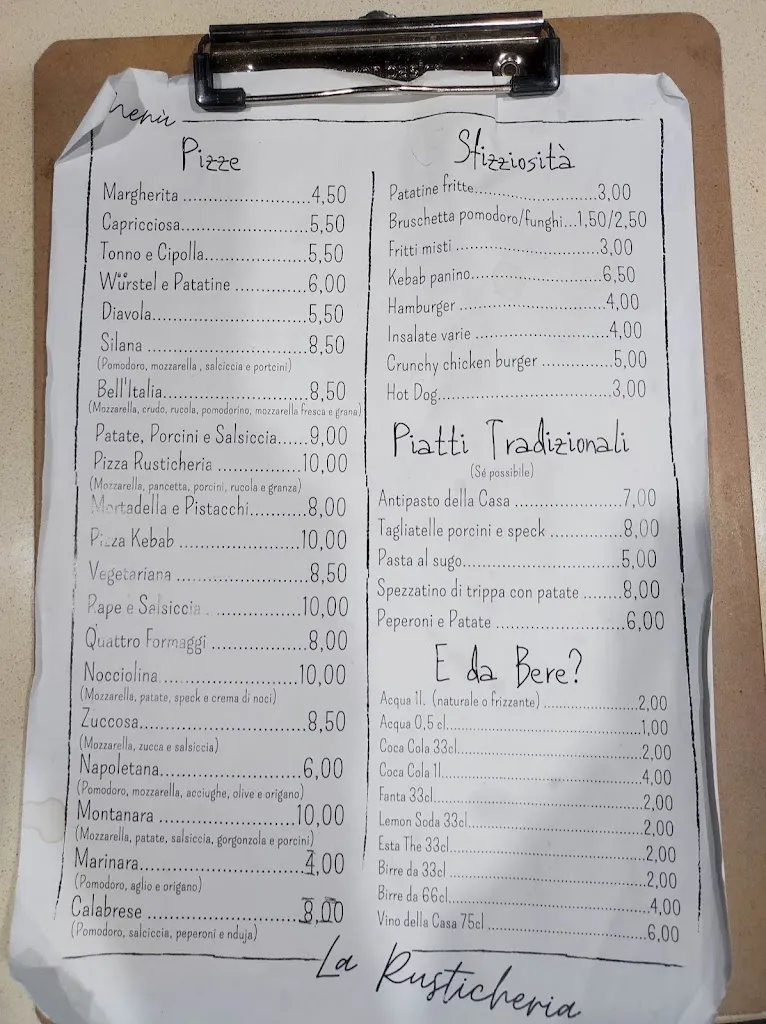 Menù
Pizze
Margherita ..................4,50
Capricciosa..................5,50
Tonno e Cipolla..............5,50
Würstel e Patatine ..........6,00
Diavola......................5,50
Silana ......................8,50
(Pomodoro, mozzarella , salciccia e porcini)
Bell'Italia..................8,50
(Mozzarella, crudo, rucola, pomodorino, mozzarella fresca e grana)
Patate, Porcini e Salsiccia.....9,00
Pizza Rusticheria ...........10,00
(Mozzarella, pancetta, porcini, rucola e granza)
Mortadella e Pistacchi.......8,00
Pizza Kebab .................10,00
Vegetariana .................8,50
Rape e Salsiccia ............10,00
Quattro Formaggi ............8,00
Nocciolina...................10,00
(Mozzarella, patate, speck e crema di noci)
Zuccosa......................8,50
(Mozzarella, zucca e salsiccia)
Napoletana...................6,00
(Pomodoro, mozzarella, acciughe, olive e origano)
Montanara ...................10,00
(Mozzarella, patate, salsiccia, gorgonzola e porcini)
Marinara.....................4,00
(Pomodoro, aglio e origano)
Calabrese ...................8,00
(Pomodoro, salciccia, peperoni e nduja)
Sfizziosità
Patatine fritte..................3,00
Bruschetta pomodoro/funghi...1,50/2,50
Fritti misti .....................3,00
Kebab panino.....................6,50
Hamburger .......................4,00
Insalate varie ...................4,00
Crunchy chicken burger ...........5,00
Hot Dog..........................3,00
Piatti Tradizionali
(Sé possibile)
Antipasto della Casa .............7,00
Tagliatelle porcini e speck ......8,00
Pasta al sugo....................5,00
Spezzatino di trippa con patate ......8,00
Peperoni e Patate ................6,00
E da Bere?
Acqua 1l. (naturale o frizzante) ..........2,00
Acqua 0,5 cl.....................1,00
Coca Cola 33cl...................2,00
Coca Cola 1l.....................4,00
Fanta 33cl.......................2,00
Lemon Soda 33cl..................2,00
Esta The 33cl....................2,00
Birre da 33cl....................2,00
Birre da 66cl....................4,00
Vino della Casa 75cl .............6,00
La Rusticheria